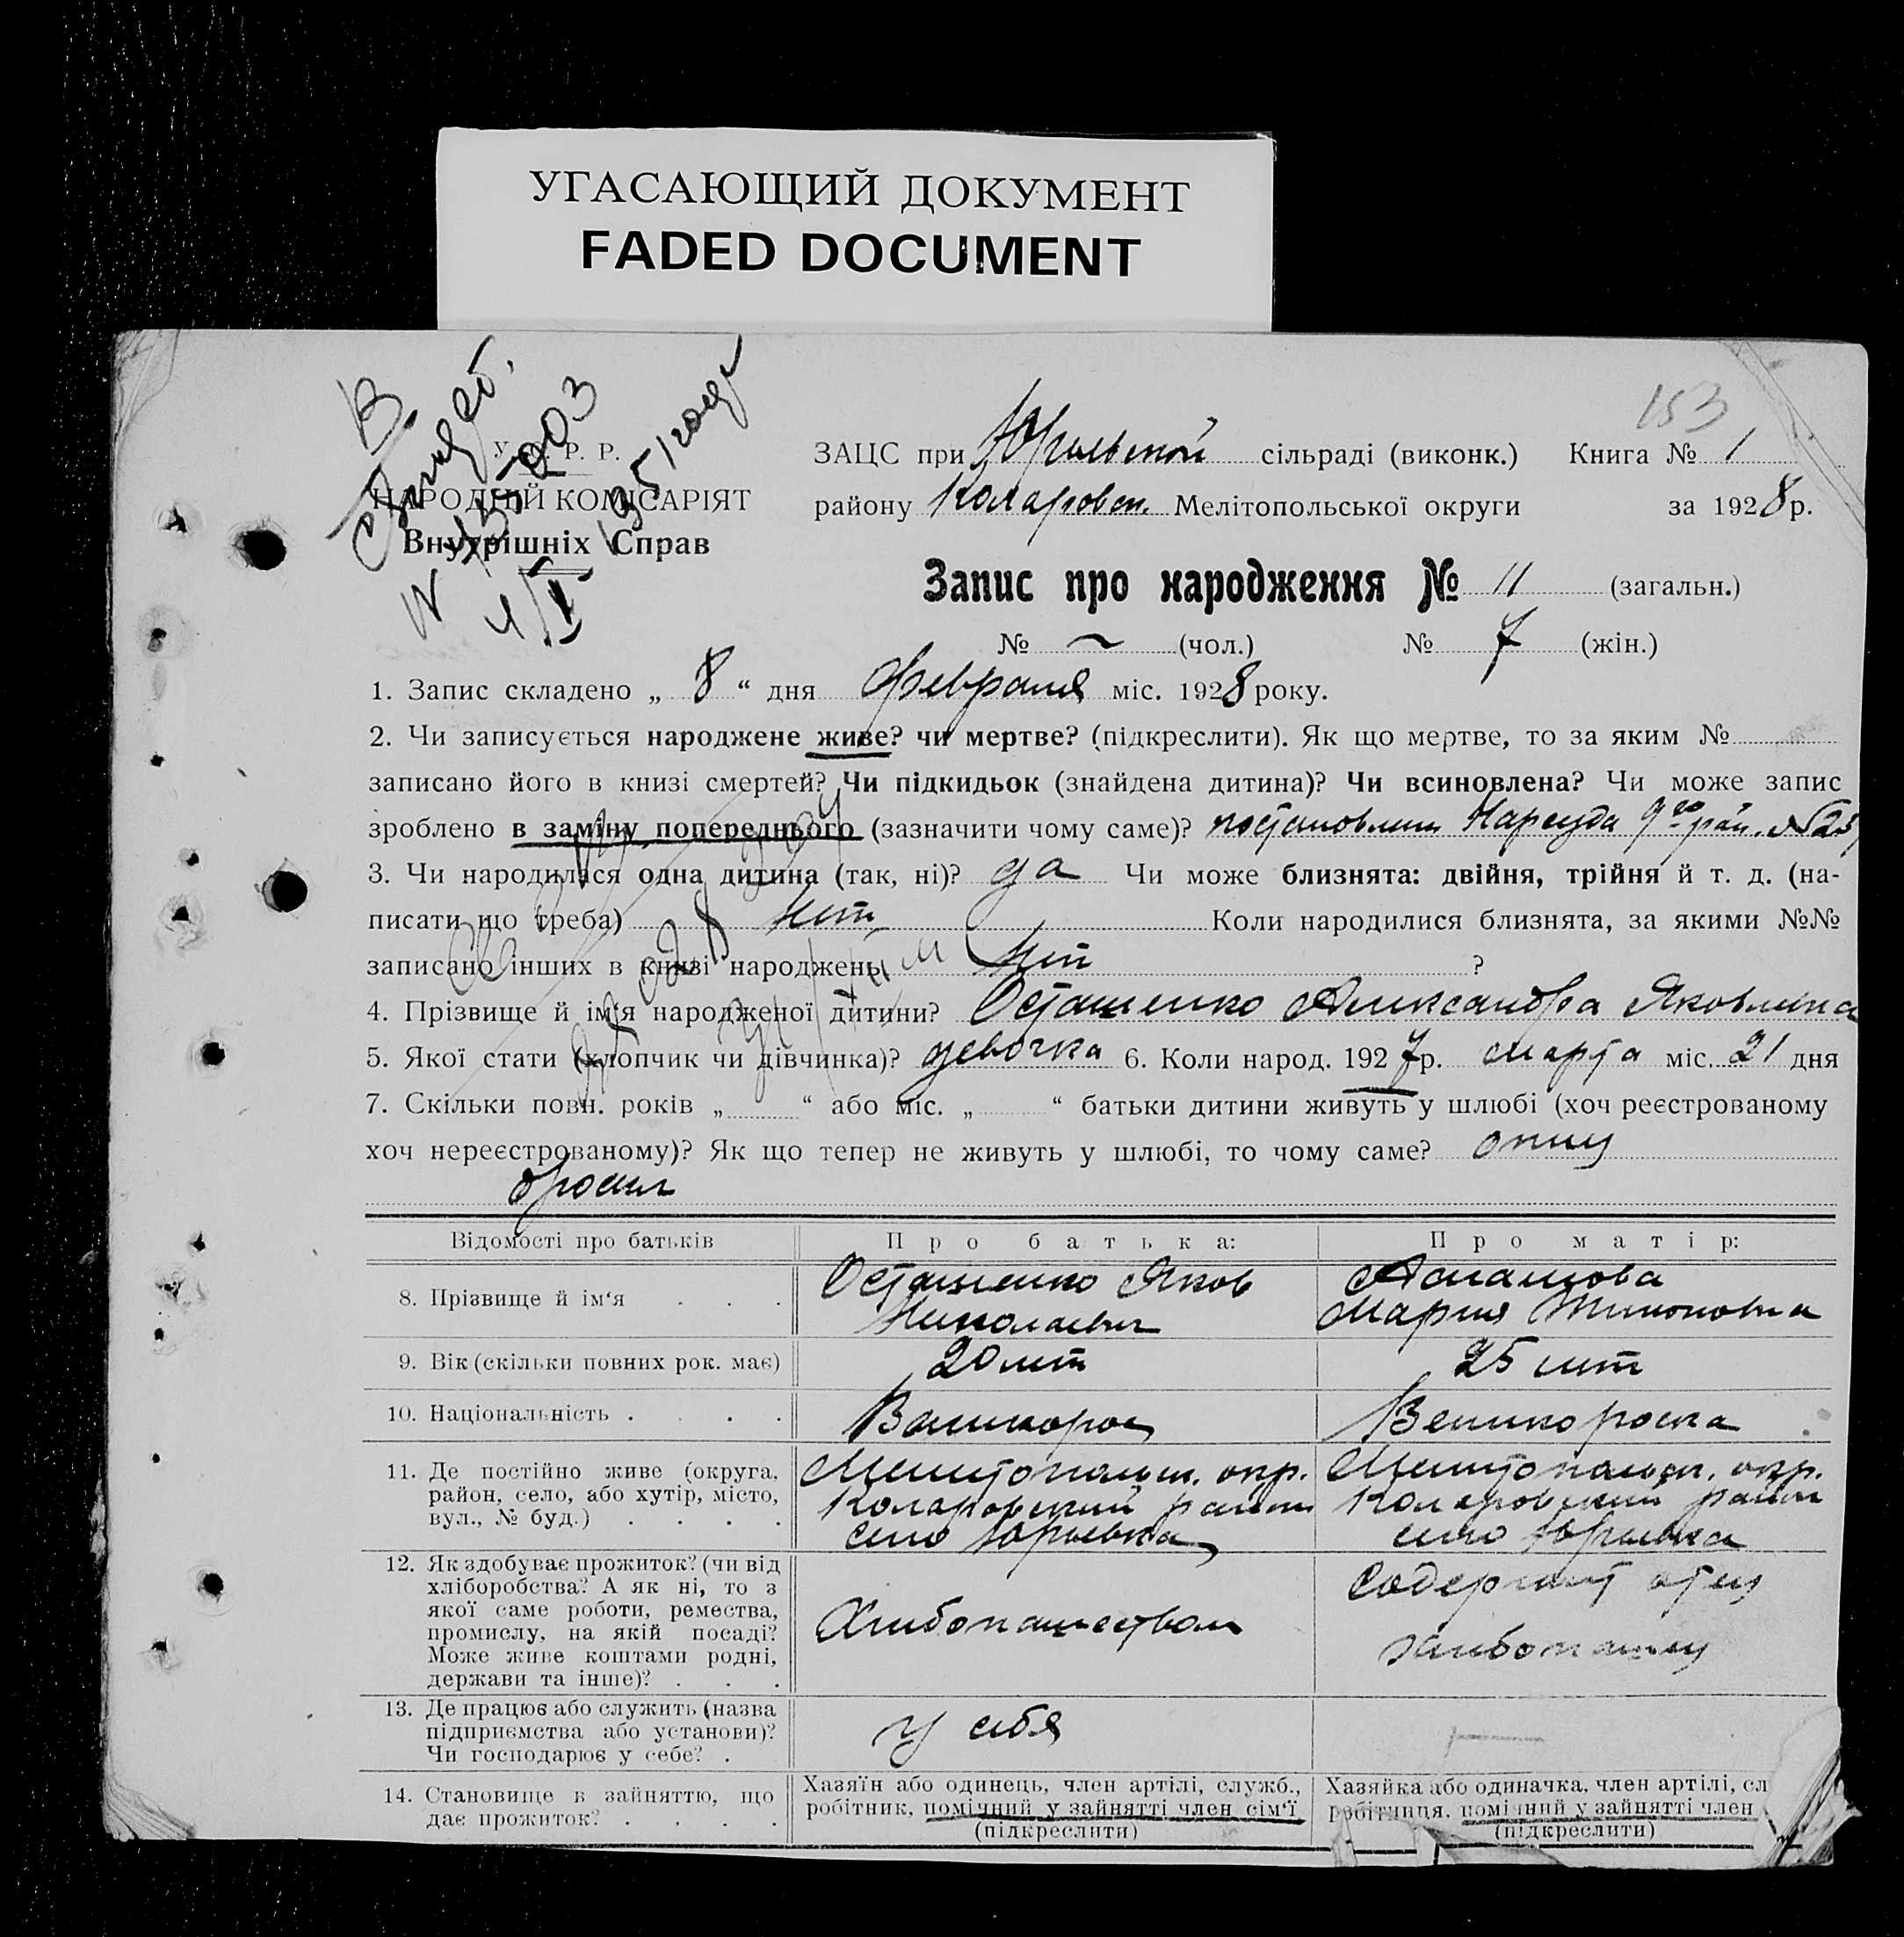 УГАСАЮЩИЙ ДОКУМЕНТ
FADED DOCUMENT
153
У. С. Р. Р.
НАРОДНІЙ КОМІСАРІЯТ
Внутрішніх Справ
1951 года
ЗАЦС при Юрьевской сільраді (виконк.) Книга № 1
району Коларовск. Мелітопольської округи за 1928 р.
Запис про народження № 11 (загальн.)
№ ~ (чол.) № 7 (жін.)
1. Запис складено „ 8 “ дня февраля міс. 1928 року.
2. Чи записується народжене живе? чи мертве? (підкреслити). Як що мертве, то за яким №
записано його в книзі смертей? Чи підкидьок (знайдена дитина)? Чи всиновлена? Чи може запис
зроблено в заміну попереднього (зазначити чому саме)? постановлен. Нарсуда 9го рай. №
3. Чи народилася одна дитина (так, ні)? да Чи може близнята: двійня, трійня й т. д. (на-
писати що треба) нет Коли народилися близнята, за якими №№
записано інших в книзі народжень нет ?
4. Прізвище й ім‘я народженої дитини? Осташенко Александра Яковлевна
5. Якої стати (хлопчик чи дівчинка)? девочка 6. Коли народ. 1927 р. марта міс. 21 дня
7. Скільки повн. років „ “ або міс. „ “ батьки дитини живуть у шлюбі (хоч реєстрованому
хоч нереєстрованому)? Як що тепер не живуть у шлюбі, то чому саме? отец
бросил
Відомості про батьків Про батька: Про матір:
8. Прізвище й ім‘я . . . Осташенко Яков Николаевич
Мария Тихоновна
9. Вік (скільки повних рок. має) 20 лет 25 лет
10. Національність . . . . Великорос Великороска
11. Де постійно живе (округа, район, село, або хутір, місто, вул., № буд.) . . . .
Мелитопольск. окр. Мелитопольск. окр.
Коларовский район Коларовский район
село Юрьевка село Юрьевка
12. Як здобуває прожиток? (чи від
хліборобства? А як ні, то з
якої саме роботи, ремества,
промислу, на якій посаді?
Може живе коштами родні,
держави та інше)? . . .
Хлебопашеством
Содержит отец
хлебопашец
13. Де працює або служить (назва
підприємства або установи)?
Чи господарює у себе? .
у себя —
14. Становище в зайняттю, що
дає прожиток? . . . .
Хазяїн або одинець, член артілі, служб.,
робітник, помічний у зайнятті член сім‘ї
(підкреслити)
Хазяйка або одиначка, член артілі, сл
робітниця, помічний у зайнятті член
(підкреслити)